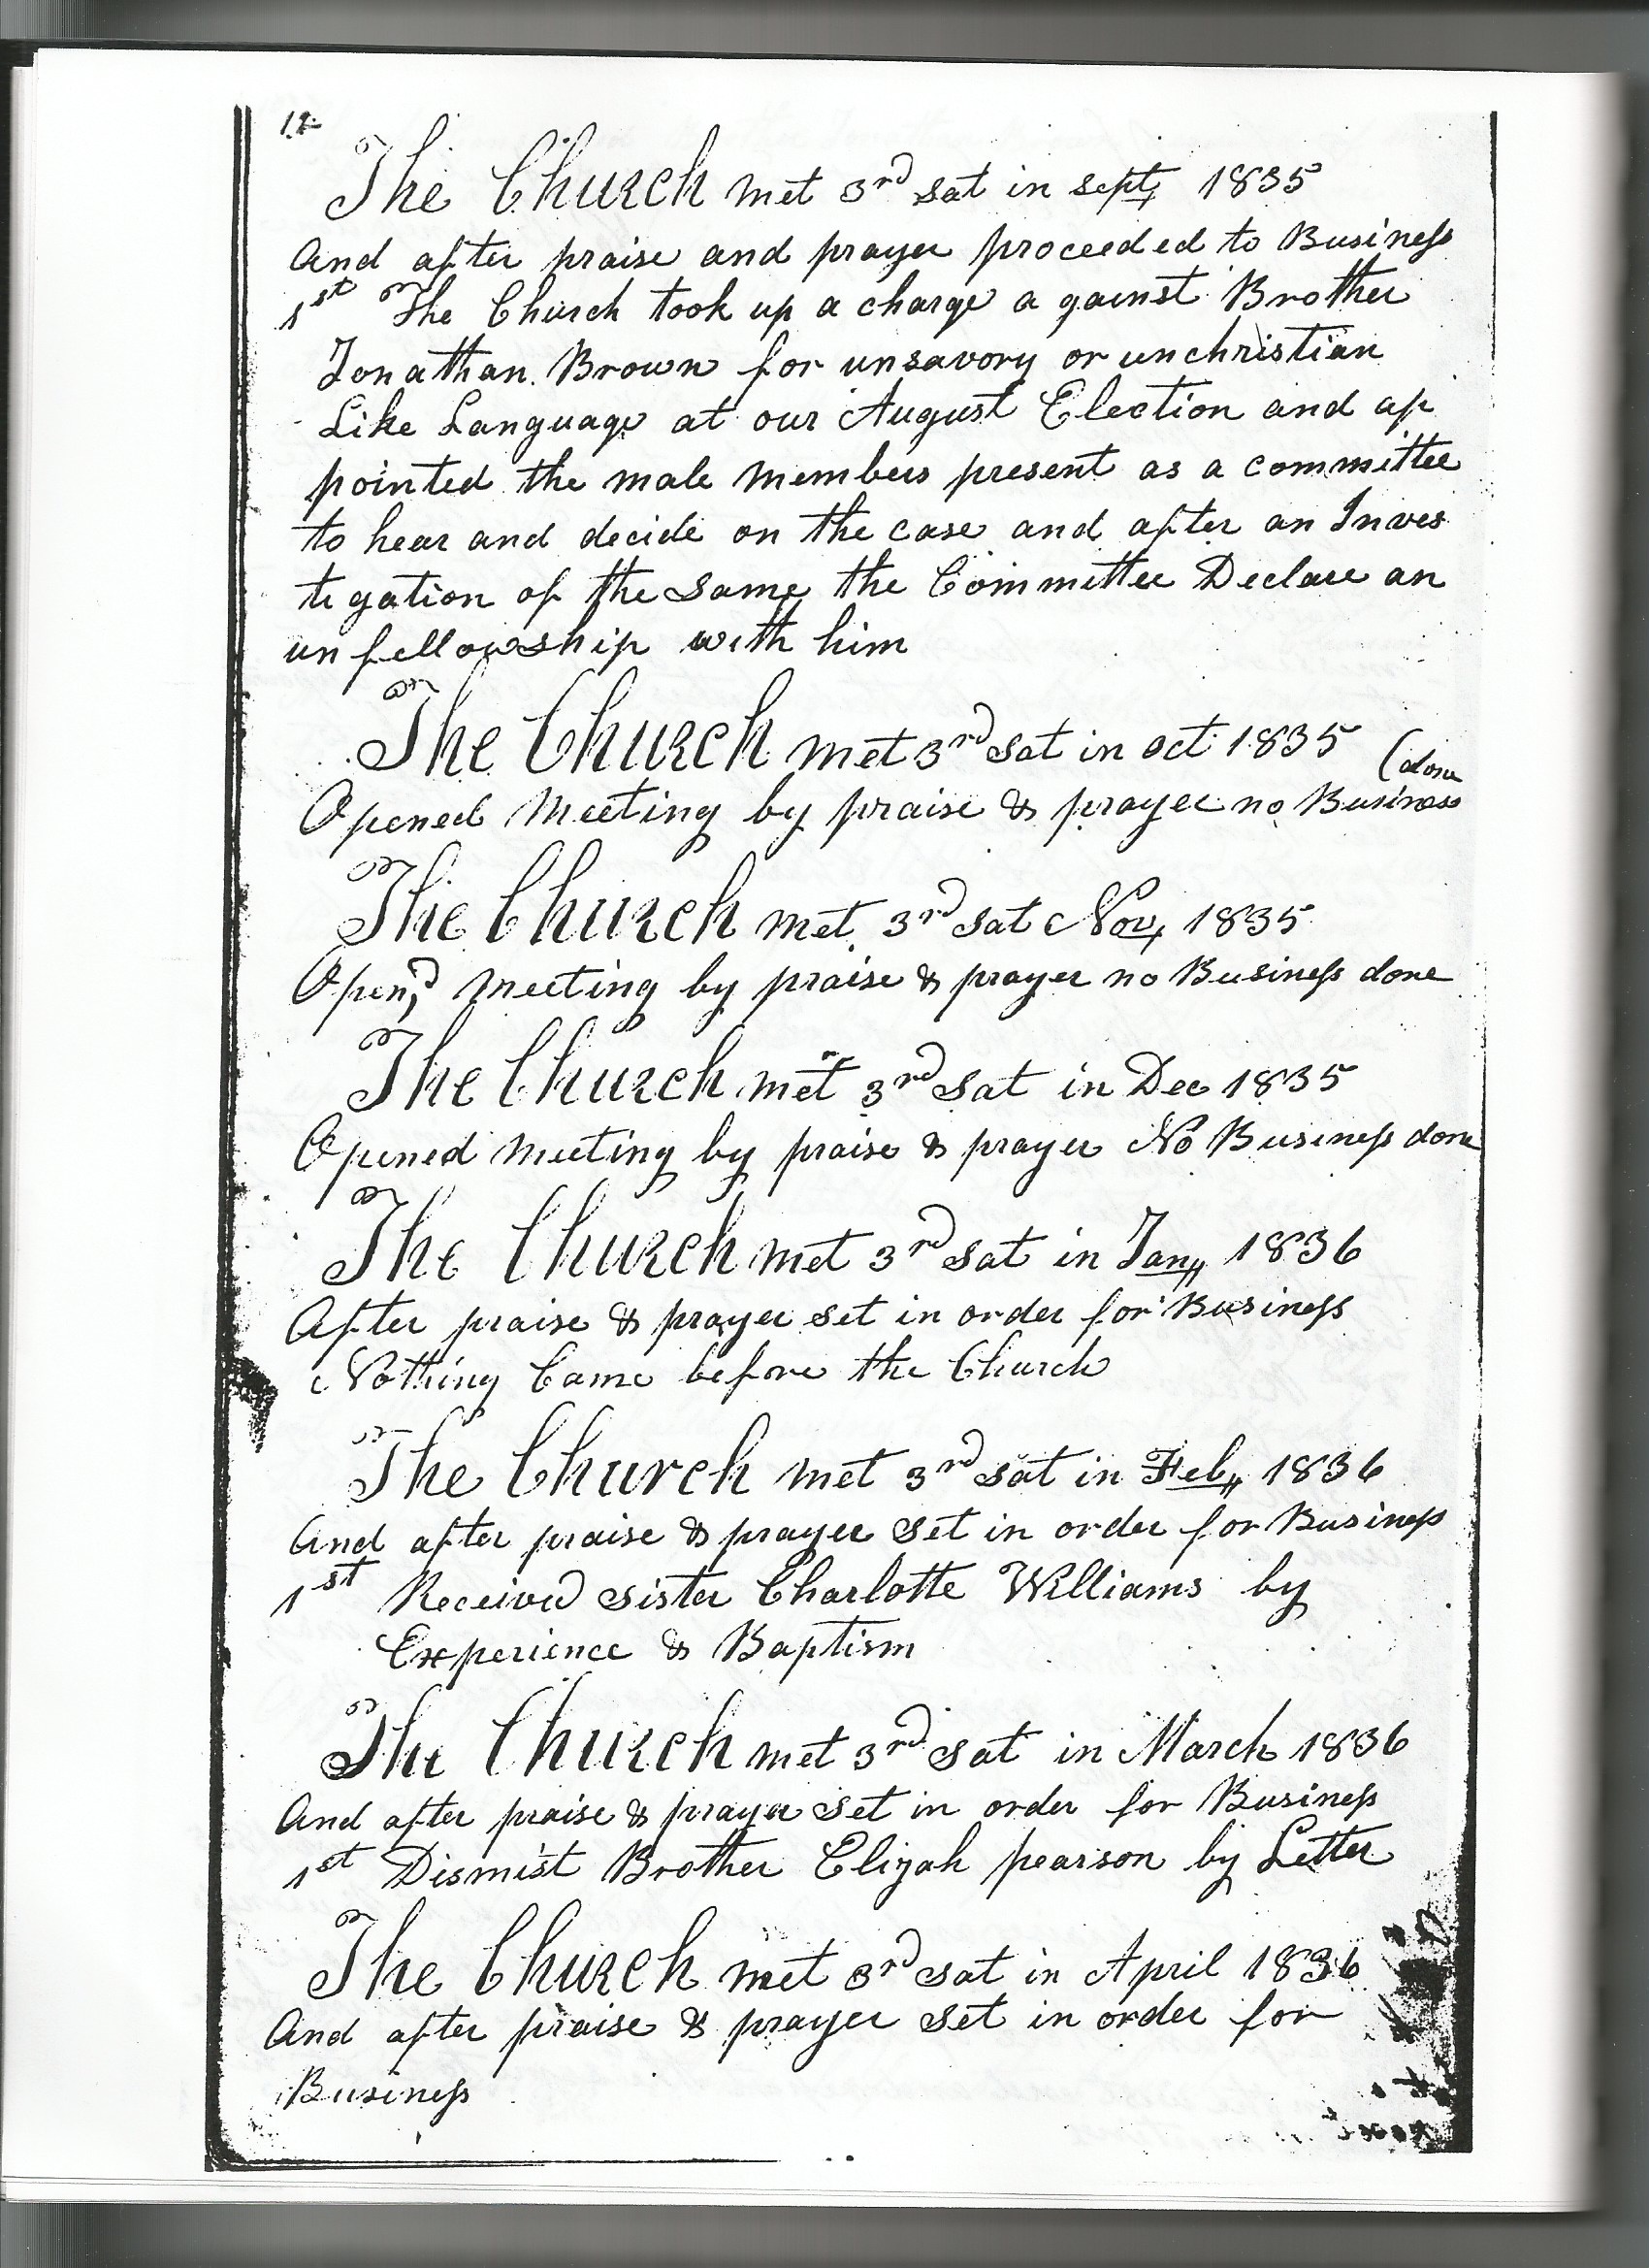 12
The Church met 3rd sat in sept, 1835
And after praise and prayer proceeded to Business
1st The Church took up a charge a gainst Brother
Jonathan Brown for unsavory or unchristian
Like Language at our August Election and ap
pointed the male members present as a committee
to hear and decide on the case and after an Inves
tigation of the same the Committee Declare an
unfellowship with him
The Church met 3rd sat in oct 1835
(done
Opened Meeting by praise & prayer no Business
The Church met 3rd sat Nov, 1835
Open,d meeting by praise & prayer no Business done
The Church met 3rd sat in Dec 1835
Opened meeting by praise & prayer No Business done
The Church met 3rd sat in Jan,, 1836
After praise & prayer set in order for Business
Nothing Came before the Church
The Church met 3rd sat in Feb,, 1836
And after praise & prayer set in order for Business
1st Received sister Charlotte Williams by
Experience & Baptism
The Church met 3rd sat in March 1836
And after praise & prayer set in order for Business
1st Dismist Brother Elijah pearson by Letter
The Church met 3rd sat in April 1836
And after praise & prayer set in order for
Business